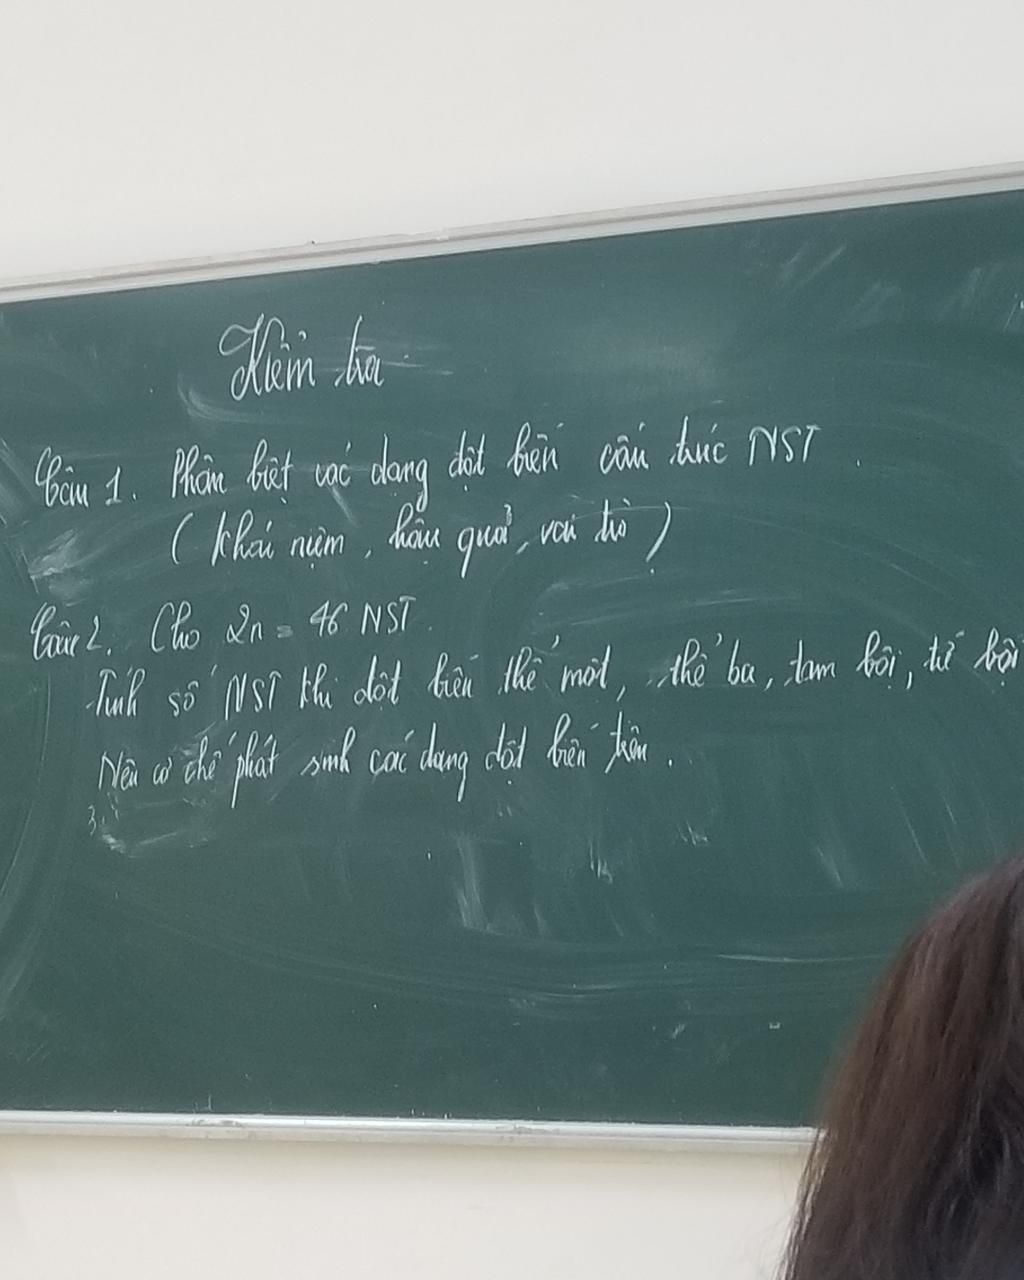 Kiểm tra
Câu 1. Phân biệt các dạng đột biến cấu trúc NST.
(Khái niệm, hậu quả, vai trò)
Câu 2. Cho 2n = 46 NST.
Tính số NST khi đột biến thể một, thể ba, tam bội, tứ bội
Nêu cơ chế phát sinh các dạng đột biến trên.